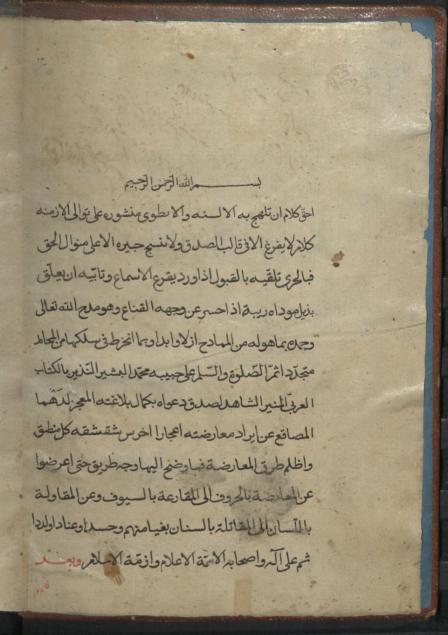 بسم الله الرحمن الرحيم
احق كلام ان تلهج به الالسنه والانطوى منشوره على توالى الازمنه
كلام لا يفرغ الا فى قالب الصدق ولا ينسج حبره الا على منوال الحق
فبالحرى تلقيه بالقبول اذا ورد يقرع الاسماع وتابيه ان يعلق
بذيل موداه ريبة اذا حسر عن وجهه القناع وهو مدح الله تعالى
وحمده بما هو له من الممادح ازلا وابدا وبما انخرط فى سلكها من المحامد
متجددا ثم الصلوة والسلم على حبيبه محمد البشير النذير بالكتاب
العربى المنير الشاهد لصدق دعواه بكمال بلاغته المعجز لدهما
المصاقع عن ايراد معارضته اعجازا اخرس شقشقه كل منطق
واظلم طرق المعارضة فما وضح اليها وجه طريق حتى اعرضوا
عن المعارضة بالحروف الى المقارعة بالسيوف وعن المقاولة
باللسان الى المقاتلة بالسنان بغيا منهم وحسدا وعنادا ولددا
ثم على آله واصحابه الائمة الاعلام وازمة الاسلام وبعد